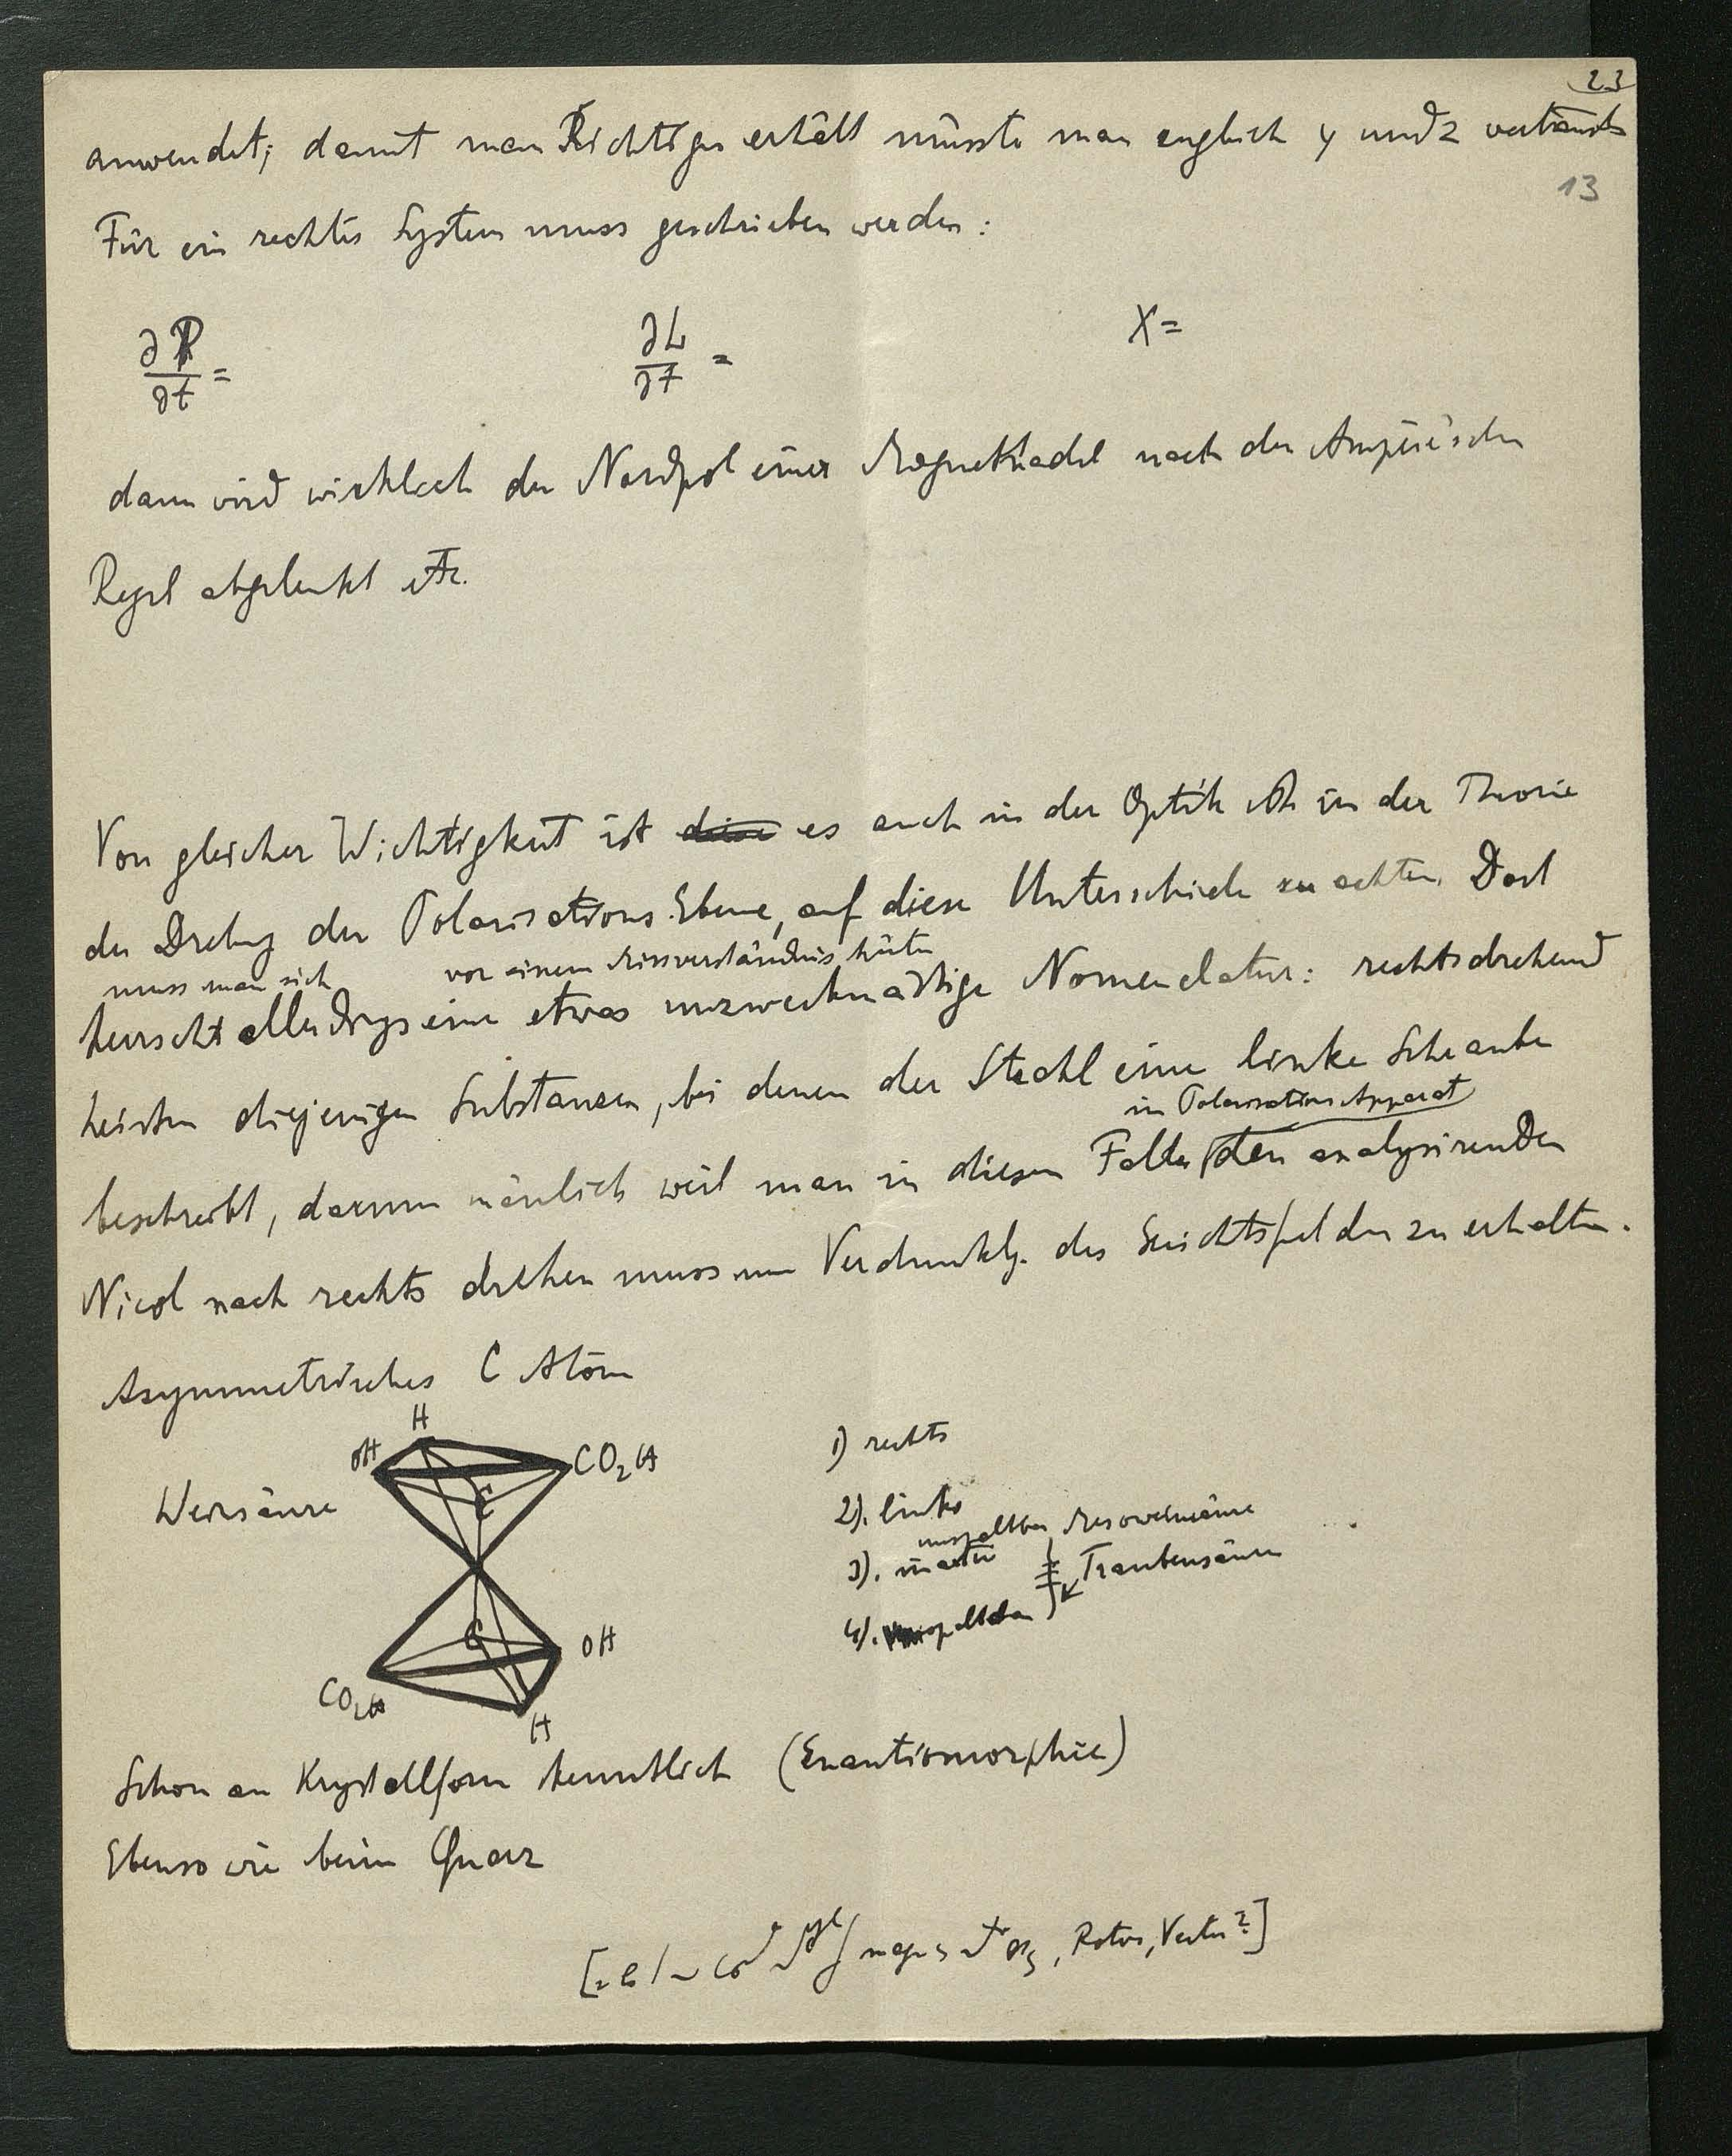 23
anwendet; damit man Richtiges erhält müsste man englisch y und z vertausch
13
Für ein rechtes System muss geschrieben werden:
∂P/∂t = ∂L/∂t = X =
dann wird wirklich der Nordpol einer Magnetnadel nach der Ampère'schen
Regel abgelenkt etc.
Von gleicher Wichtigkeit ist diese es auch in der Optik in der Theorie
der Drehung der Polarisations Ebene, auf diese Unterschiede zu achten. Dort
muss man sich vor einem Missverständnis hüten
herrscht allerdings eine etwas unzweckmässige Nomenclatur: rechtsdrehend
heissen diejenigen Substanzen, bei denen der Strahl eine linke Schraube
in Polarisations Apparat
beschreibt, darum nämlich weil man in diesem Falle den analysirenden
Nicol nach rechts drehen muss um Verdunklg. des Gesichtsfeldes zu erhalten.
Asymmetrisches C Atom
H
OH CO2H
Weinsäure C
C
OH
CO2H
H
1) rechts
2). links
unspaltbar Mesoweinsäure
3). inactiv Traubensäure
4). spaltbar
Schon an Krystallform kenntlich (Enantiomorphie)
Ebenso wie beim Quarz
Rotor, Vector?]